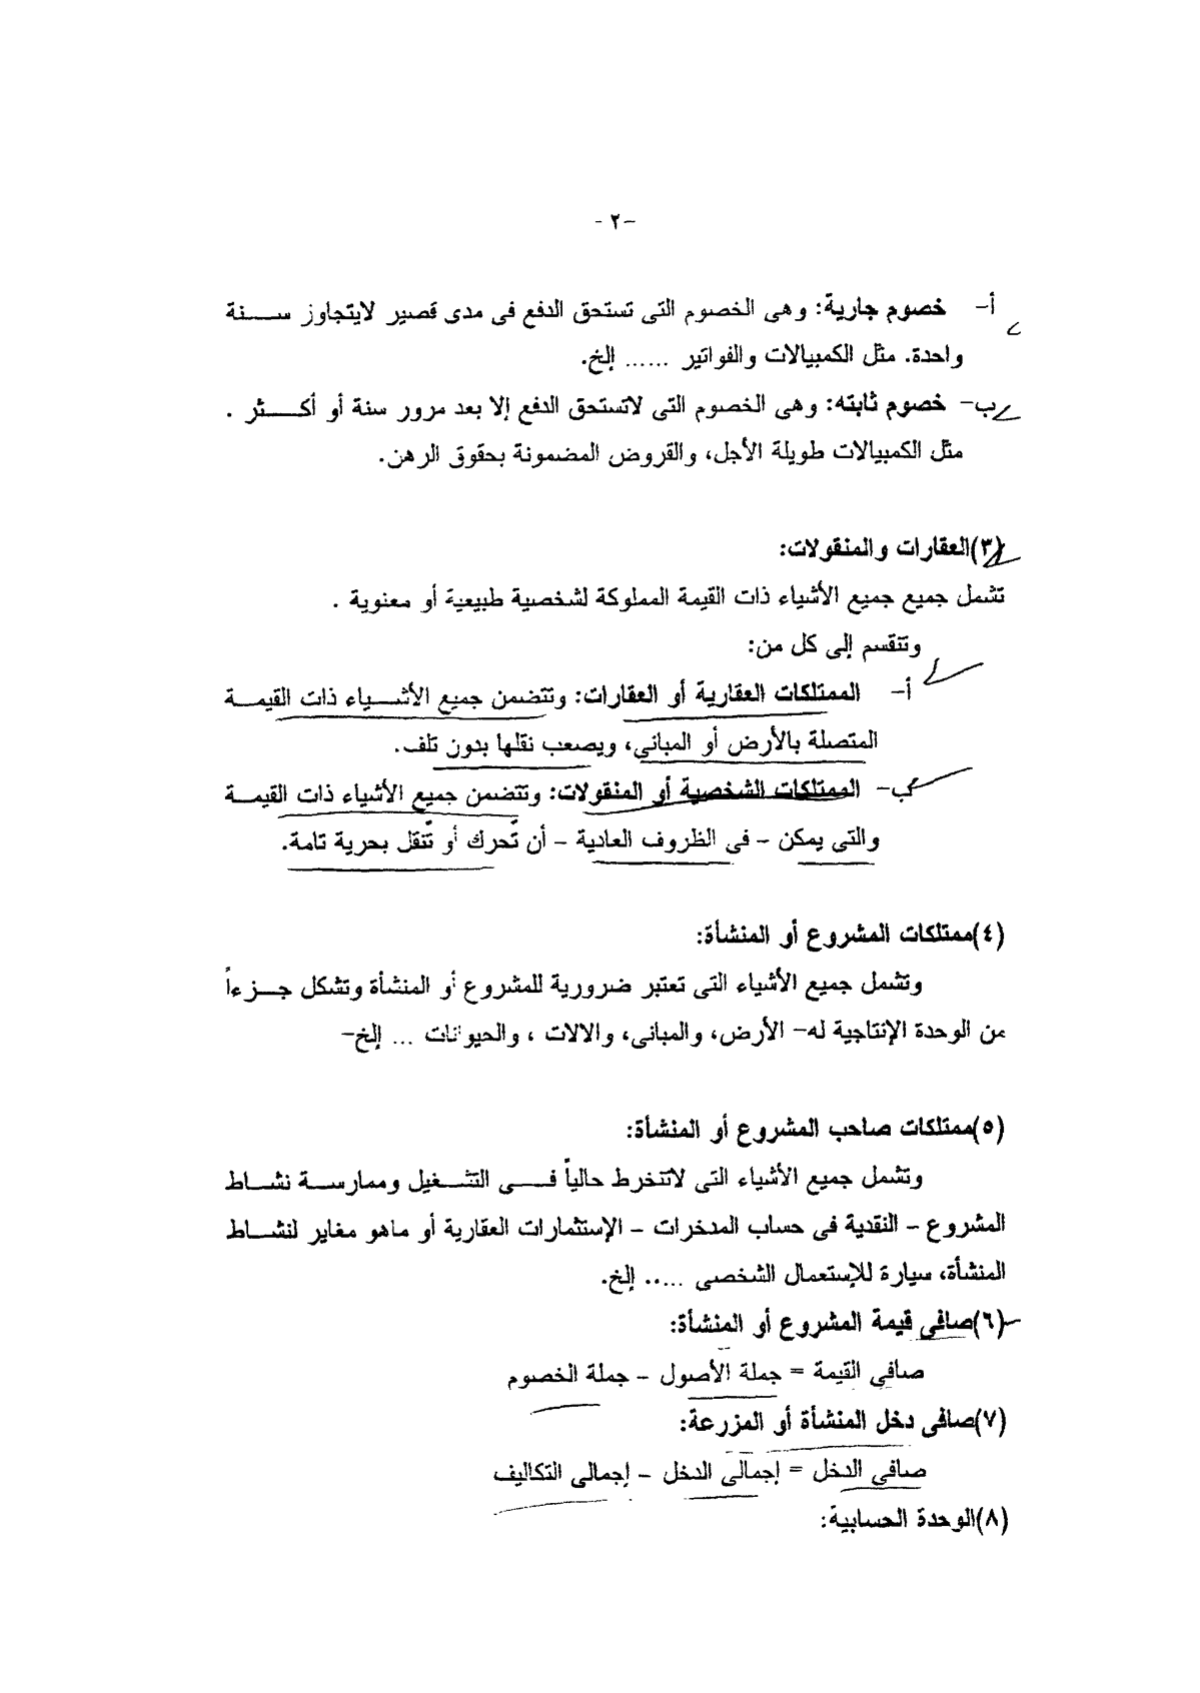 -٢-
أ- خصوم جارية: وهى الخصوم التى تستحق الدفع فى مدى قصير لايتجاوز سنة
واحدة. مثل الكمبيالات والفواتير ...... إلخ.
ب- خصوم ثابته: وهى الخصوم التى لاتستحق الدفع إلا بعد مرور سنة أو أكثر .
مثل الكمبيالات طويلة الأجل، والقروض المضمونة بحقوق الرهن.
(٣)العقارات والمنقولات:
تشمل جميع جميع الأشياء ذات القيمة المملوكة لشخصية طبيعية أو معنوية .
وتنقسم إلى كل من:
أ- الممتلكات العقارية أو العقارات: وتتضمن جميع الأشياء ذات القيمة
المتصلة بالأرض أو المبانى، ويصعب نقلها بدون تلف.
ب- الممتلكات الشخصية أو المنقولات: وتتضمن جميع الأشياء ذات القيمة
والتى يمكن - فى الظروف العادية - أن تُحرك أو تُنقل بحرية تامة.
(٤)ممتلكات المشروع أو المنشأة:
وتشمل جميع الأشياء التى تعتبر ضرورية للمشروع أو المنشأة وتشكل جزءاً
من الوحدة الإنتاجية له- الأرض، والمبانى، والالات ، والحيوانات ... إلخ-
(٥)ممتلكات صاحب المشروع أو المنشأة:
وتشمل جميع الأشياء التى لاتنخرط حالياً فى التشغيل وممارسة نشاط
المشروع - النقدية فى حساب المدخرات - الإستثمارات العقارية أو ماهو مغاير لنشاط
المنشأة، سيارة للإستعمال الشخصى ..... إلخ.
(٦)صافى قيمة المشروع أو المنشأة:
صافى القيمة = جملة الأصول - جملة الخصوم
(٧)صافى دخل المنشأة أو المزرعة:
صافى الدخل = إجمالى الدخل - إجمالى التكاليف
(٨)الوحدة الحسابية: